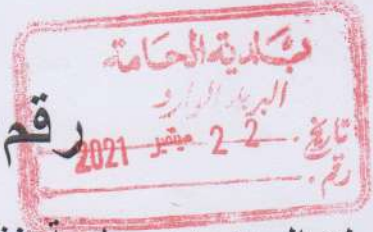 بلدية الحامة
البريد الوارد
تاريخ 22 سبتمبر 2021
رقم
رقم